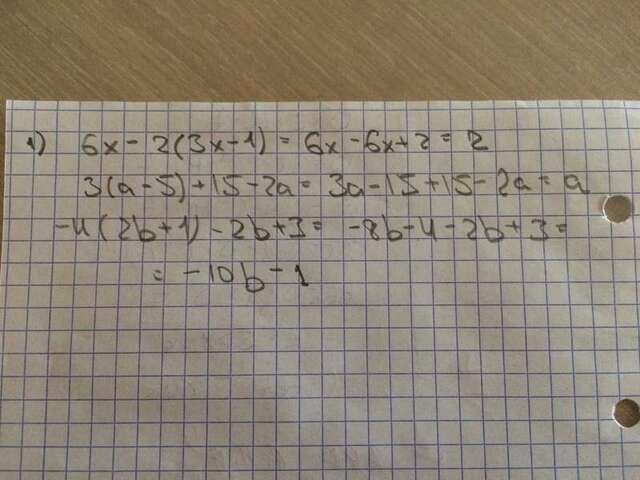 1) 6x - 2(3x-1) = 6x - 6x + 2 = 2
3(a-5) + 15 - 2a = 3a - 15 + 15 - 2a = a
-4(2b+1) - 2b + 3 = -8b - 4 - 2b + 3 =
= -10b - 1